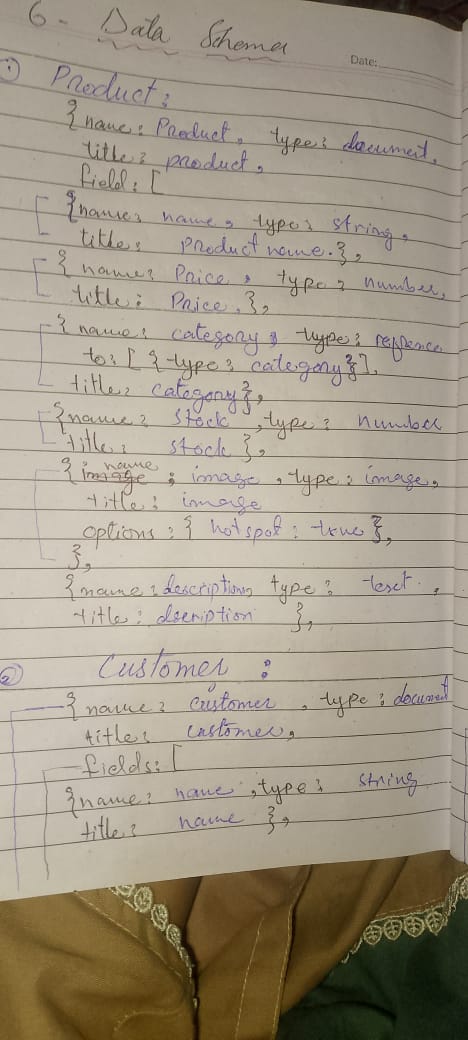 6- Data Schema
Date:
① Product:
{name: Product, type: document,
title: product,
field: [
{name: name, type: string,
title: Product name.},
{name: Price, type: number,
title: Price.},
{name: category, type: refrence
to: [{type: category}],
title: category},
{name: stock, type: number
title: stock},
{image name: image, type: image,
title: image
options: {hotspot: true},
},
{name: description, type: text,
title: dscription },
② Customer:
{name: customer, type: document
title: customer,
fields: [
{name: name, type: string
title: name },